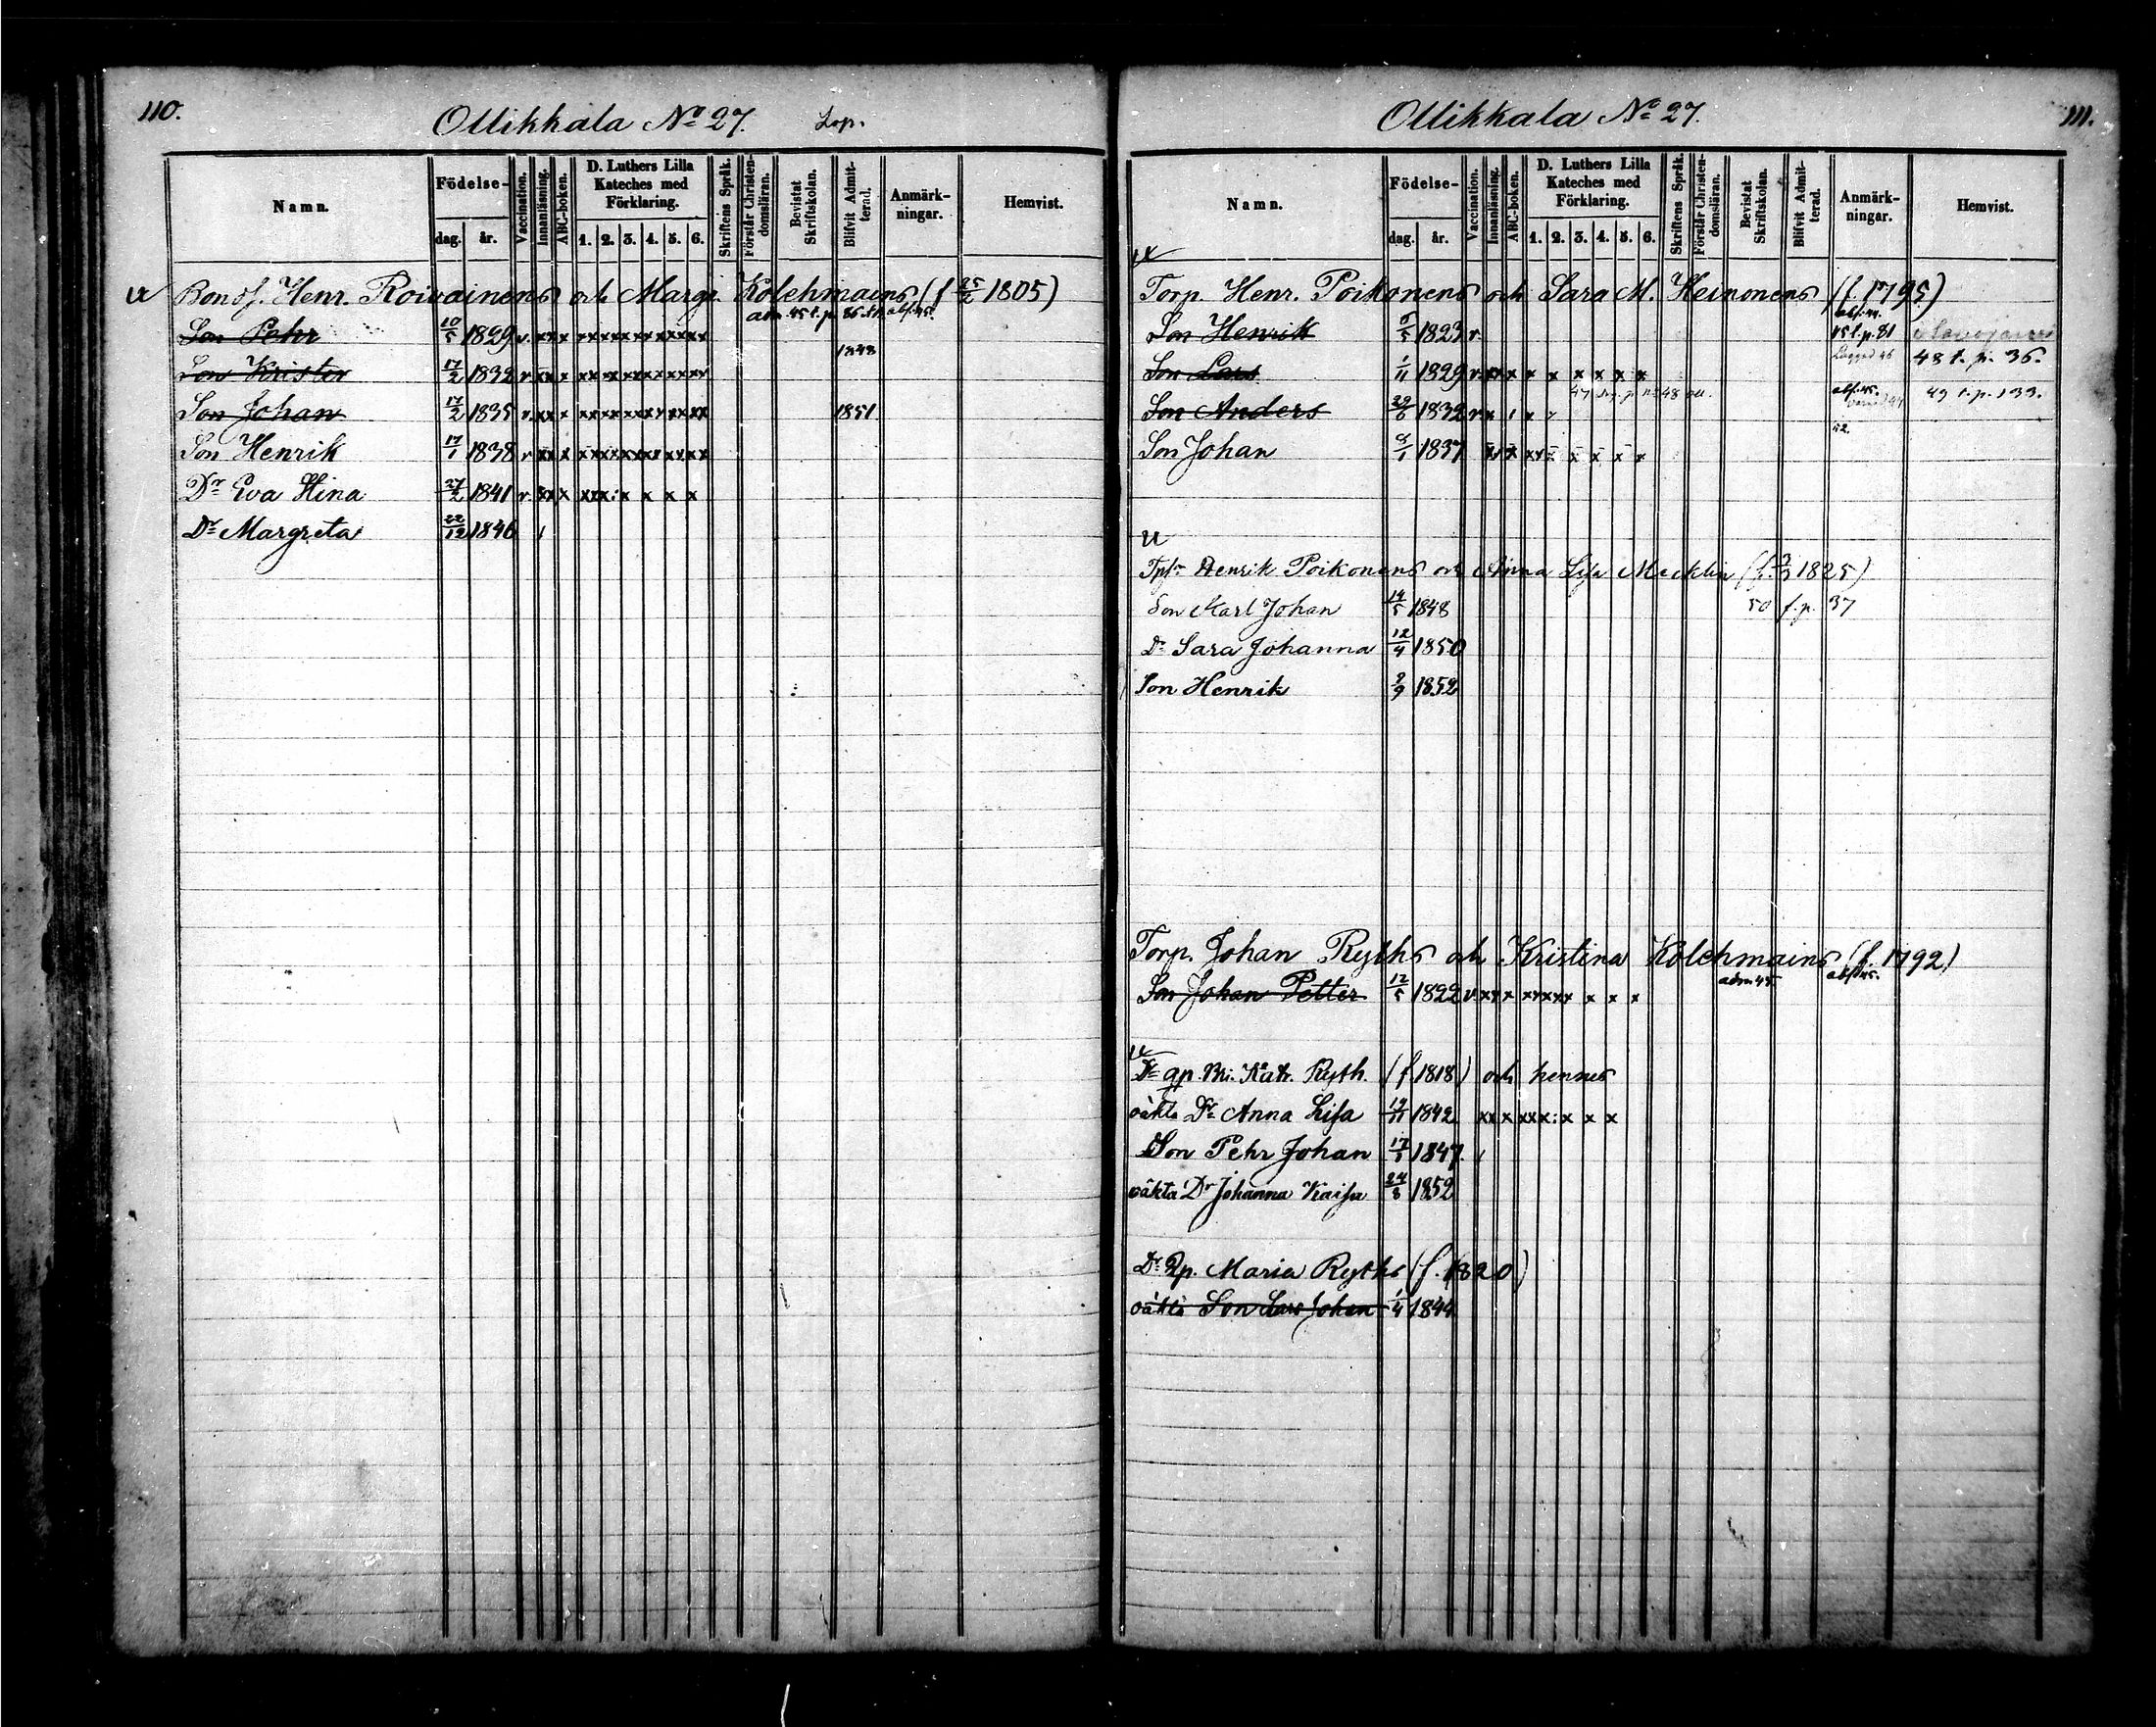 110.
Ollikkala No 27. Lop.
Namn.
Födelse-
dag. år.
Vaccination.
Innanläsning.
ABC-boken.
D. Luthers Lilla
Kateches med
Förklaring.
1. 2. 3. 4. 5. 6.
Skriftens Språk.
Förstår Christen-
domsläran.
Bevistat
Skriftskolan.
Blifvit Admit-
terad.
Anmärk-
ningar.
Hemvist.
Bonds. Henr. Roivainens och Margr. Kolehmains (f 25/2 1805)
Son Pehr 10/5 1829 v. xx x xxxxxxxxxxxx adm. 45 t.p. 86 abf. 45.
Son Krister 17/2 1832 v. xx x xxxxxxxxxxxx 1848
Son Johan 17/2 1835 v. xx x xxxxxxxxxxxx 1851
Son Henrik 17/1 1838 v xx x xxxxxxxxxxxx
Dr Eva Stina 27/2 1841 v. xx x xxx: x x x x
Dr Margreta 22/12 1846
111.
Ollikkala No 27.
Namn.
Födelse-
dag. år.
Vaccination.
Innanläsning.
ABC-boken.
D. Luthers Lilla
Kateches med
Förklaring.
1. 2. 3. 4. 5. 6.
Skriftens Språk.
Förstår Christen-
domsläran.
Bevistat
Skriftskolan.
Blifvit Admit-
terad.
Anmärk-
ningar.
Hemvist.
Torp. Henr. Poikonens och Sara M. Heinonens (f. 1795)
abf. 44.
Son Henrik 5/5 1823 v. 45 t.p. 81
48 t. p. 36.
Son Lars 1/11 1829 v. xx x x x x x x x
abf. 45. 49 t.p. 133.
Son Anders 29/6 1832 v x
52.
Son Johan 9/1 1837 xx x xxx x x x x
Henrik Poikonens och Anna Lisa Mecklin (f. 3/3 1825)
Son Karl Johan 14/5 1848 50 t.p. 37
Dr Sara Johanna 12/4 1850
Son Henrik 9/9 1852
Torp. Johan Ryths och Kristina Kolehmains (f. 1792)
Son Johan Petter 12/5 1822 v xx x xxxxx x x x adm 45. abf. 45.
Dr qp. Br. Katr. Ryth. (f 1818) och hennes
oäkta Dr Anna Lisa 19/11 1842 xx x xxx: x x x
Son Pehr Johan 17/5 1847.
oäkta Dr Johanna Kaisa 24/8 1852
Dr Qp. Maria Ryths (f. 1820)
oäkta Son Lars Johan 1/4 1844